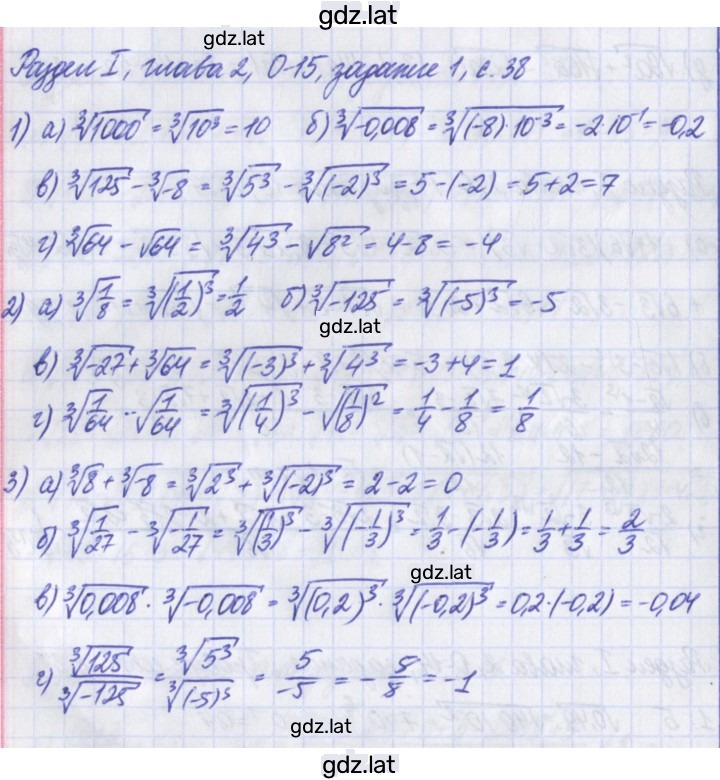 gdz.lat
gdz.lat
Раздел I, глава 2, О-15, задание 1, с. 38
1) а) ∛1000 = ∛10³ = 10 б) ∛-0,008 = ∛(-8)·10⁻³ = -2·10⁻¹ = -0,2
в) ∛125 - ∛-8 = ∛5³ - ∛(-2)³ = 5-(-2) = 5+2 = 7
г) ∛64 - √64 = ∛4³ - √8² = 4-8 = -4
2) а) ∛1/8 = ∛(1/2)³ = 1/2 б) ∛-125 = ∛(-5)³ = -5
gdz.lat
в) ∛-27 + ∛64 = ∛(-3)³ + ∛4³ = -3+4 = 1
г) ∛1/64 - √1/64 = ∛(1/4)³ - √(1/8)² = 1/4 - 1/8 = 1/8
3) а) ∛8 + ∛-8 = ∛2³ + ∛(-2)³ = 2-2 = 0
б) ∛1/27 - ∛-1/27 = ∛(1/3)³ - ∛(-1/3)³ = 1/3 - (-1/3) = 1/3 + 1/3 = 2/3
gdz.lat
в) ∛0,008 · ∛-0,008 = ∛(0,2)³ · ∛(-0,2)³ = 0,2·(-0,2) = -0,04
г) ∛125/∛-125 = ∛5³/∛(-5)³ = 5/-5 = -5/5 = -1
gdz.lat
gdz.lat